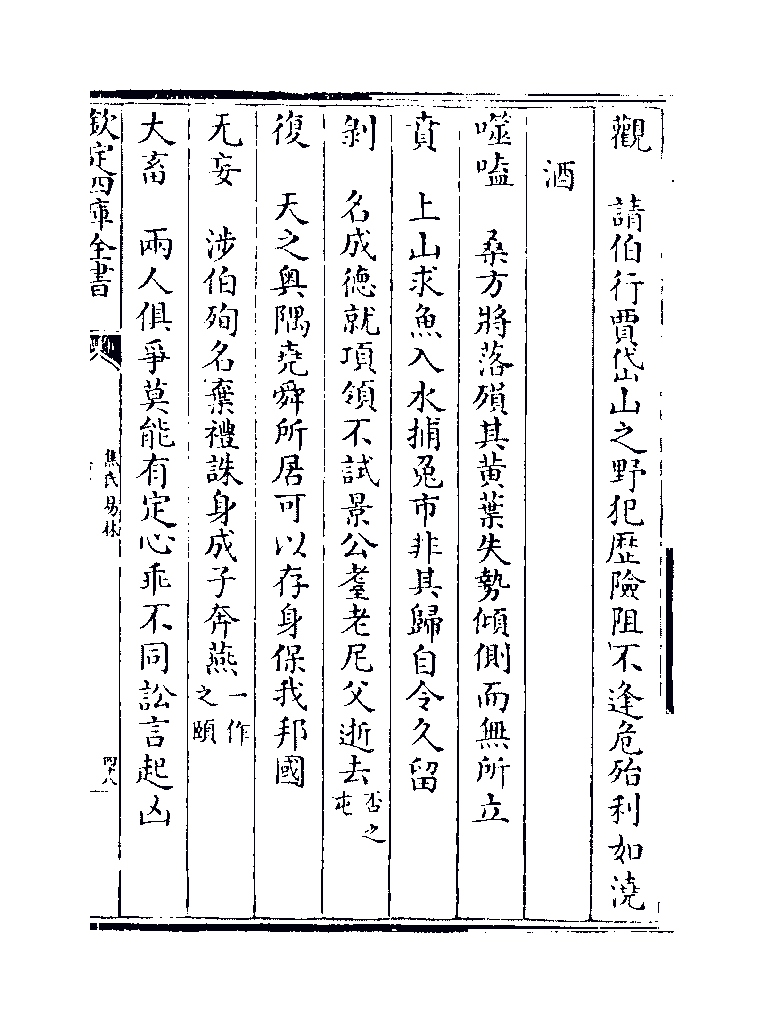 觀　請伯行賈岱山之野犯歴險阻不逢危殆利如澆
酒
噬嗑　桑方將落殞其黃葉失勢傾側而無所立
賁　上山求魚入水捕兔市非其歸自令久留
剝　名成德就項領不試景公耄老尼父逝去否之屯
復　天之奥隅堯舜所居可以存身保我邦國
无妄　涉伯殉名棄禮誅身成子奔燕一作之頤
大畜　兩人俱爭莫能有定心乖不同訟言起凶
欽定四庫全書　焦氏易林　四十八